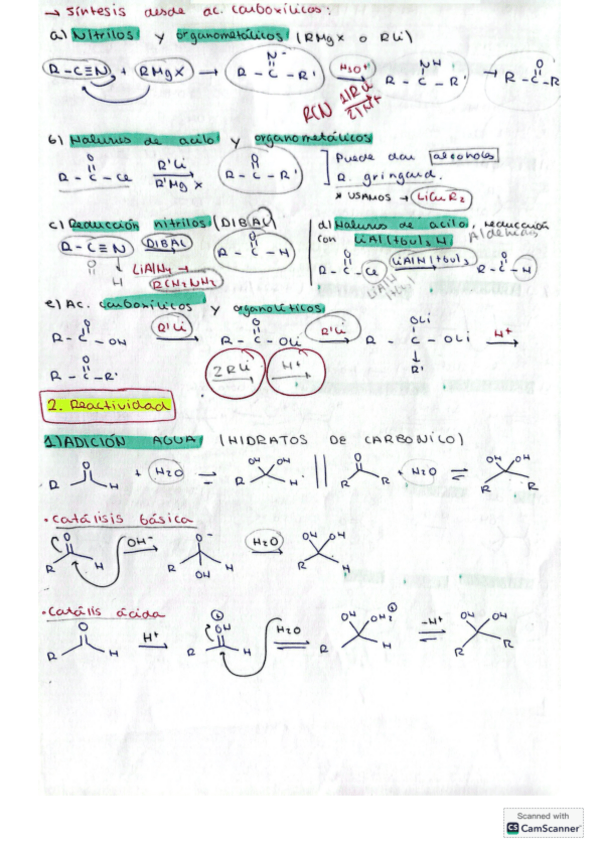 → Síntesis desde ac. carboxílicos:
a) Nitrilos y organometálicos (RMgX o RLi)
R-C≡N + RMgX → R-C-R' N⁻ H₃O⁺ → R-C-R' NH → R-C-R O
RCN 1) RLi 2) H⁺
b) Haluros de acilo y organometálicos
R-C-Cl O R'Li R'MgX → R-C-R' O Puede dar alcoholes
R. gringard.
* USAMOS → LiCuR₂
c) Reducción nitrilos (DIBAL)
R-C≡N DIBAL → R-C-H O
O H ↓ LiAlH₄ →
RCH₂NH₂
d) Haluros de acilo, reducción
con LiAl(tbu)₃H Aldehídos
R-C-Cl O LiAlH(tbu)₃ → R-C-H O
e) Ac. carboxílicos y organolíticos
R-C-OH O R'Li → R-C-OLi O R'Li → R-C-OLi OLi R' H⁺ →
R-C-R' O 2RLi H⁺
2. Reactividad
1) ADICIÓN AGUA (HIDRATOS DE CARBONILO)
R O H + H₂O ⇌ OH OH R H || R O R + H₂O ⇌ OH OH R R
• Catálisis básica
R O H OH⁻ → R O⁻ H OH H₂O → OH OH R H
• Catális ácida
R O H H⁺ → R OH H H₂O ⇌ OH OH₂ R H -H⁺ ⇌ OH OH R R
Scanned with
CS CamScanner